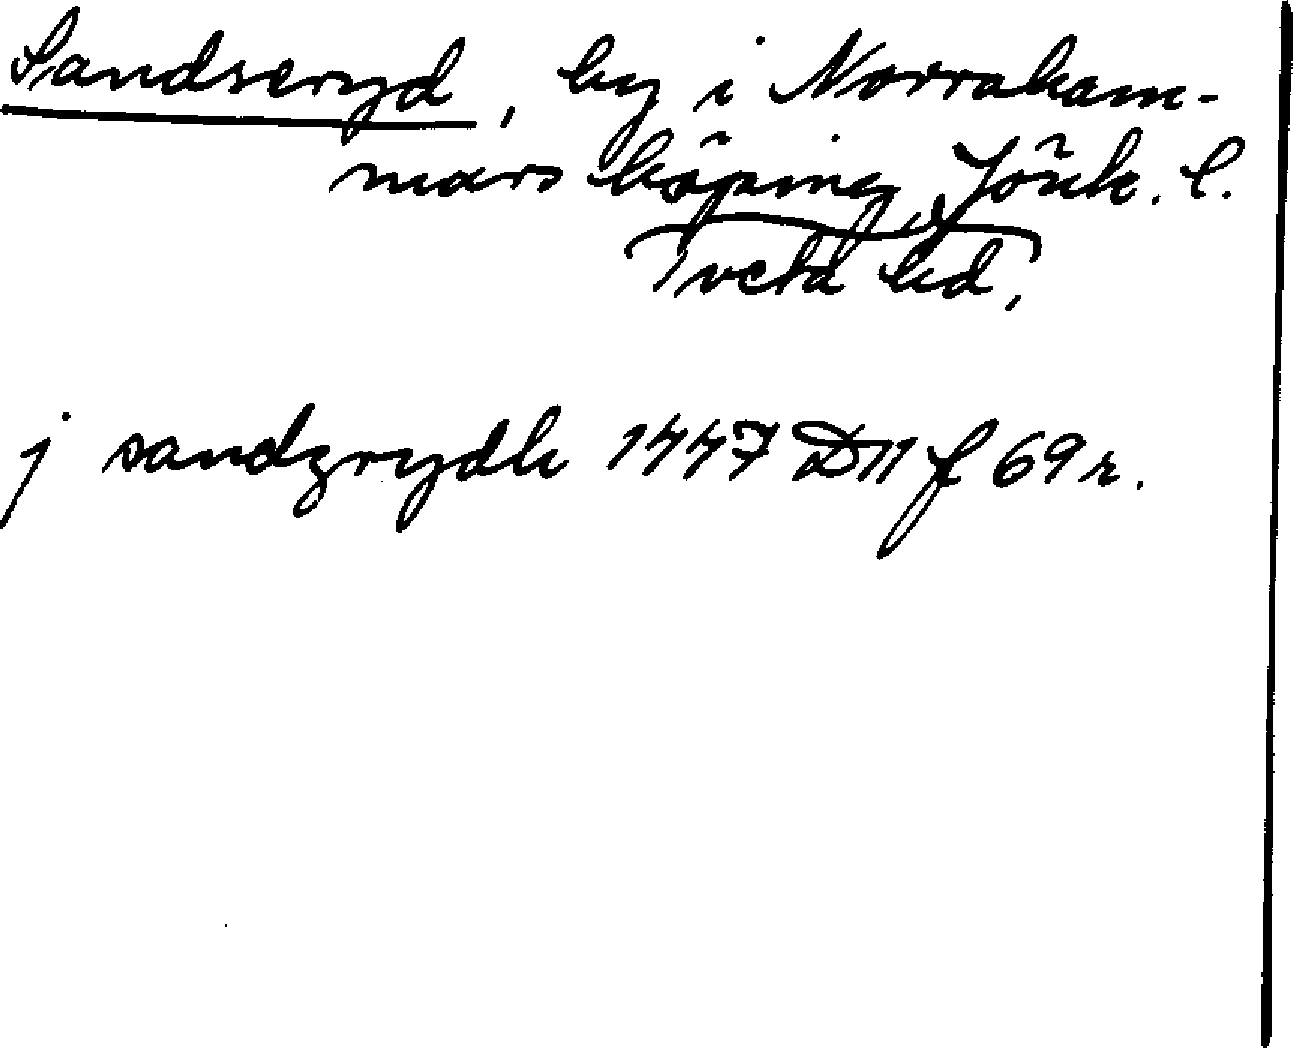 Sandseryd, by i Norraham-
mars köping, Jönk. l.
Tveta hd,
j sandzrydh 1447 D11 f 69 r.